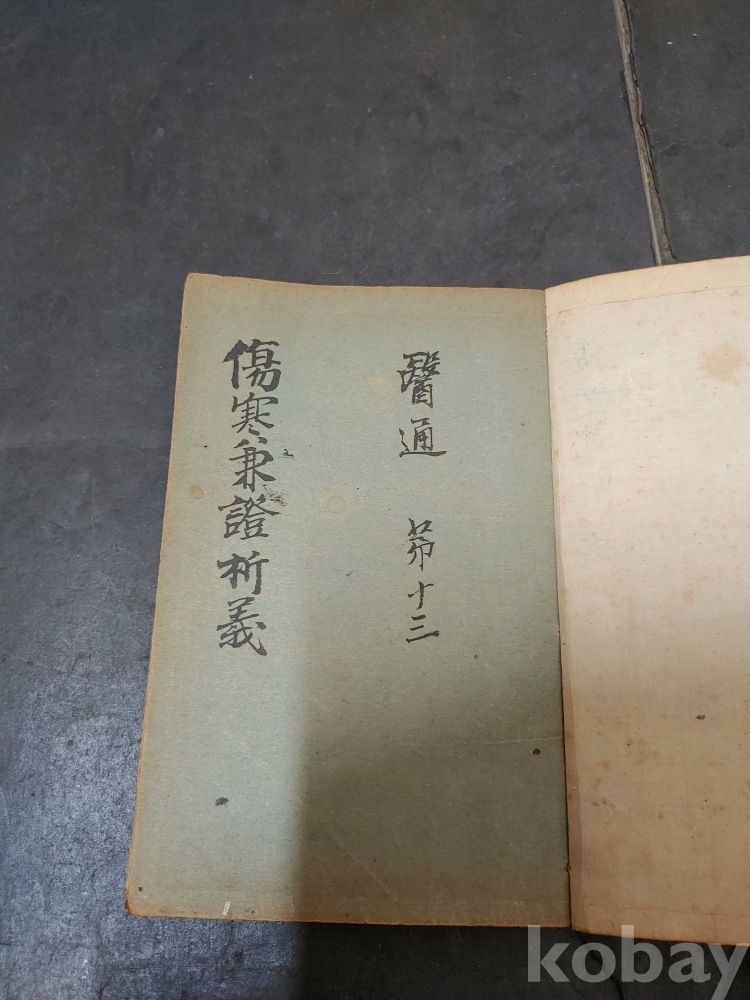 醫通 第十三
傷寒兼證析義
kobay